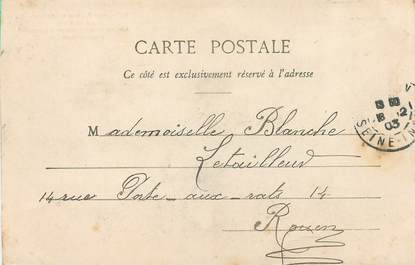 CARTE POSTALE
Ce côté est exclusivement réservé à l'adresse
Mademoiselle Blanche
Letailleur
14 rue Porte-aux-rats 14
Rouen
03
SEINE-IN